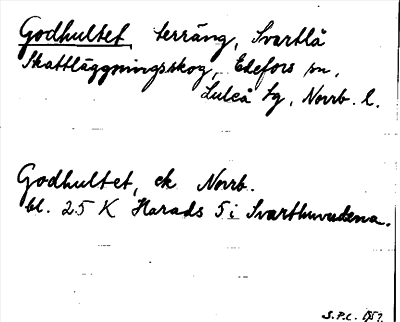 Godhultet, terräng, Svartlå
Skattläggningsskog, Edefors sn,
Luleå tg, Norrb. l.
Godhultet, ek Norrb.
bl. 25 K Harads 5 i Svarthuvudena.
S.P.C. 1957.